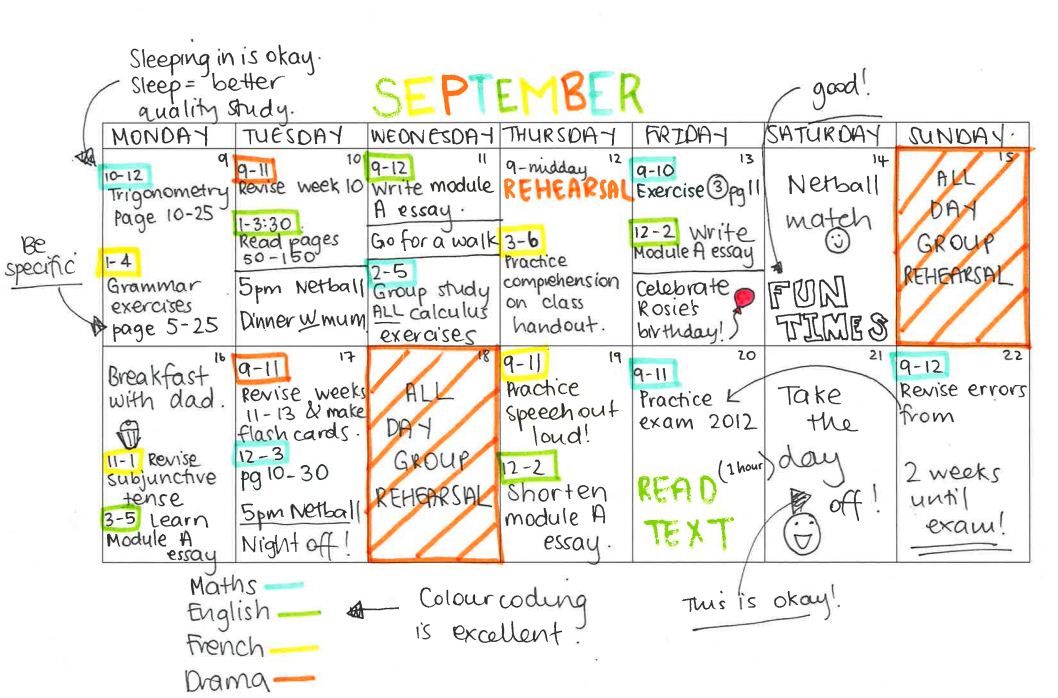 Sleeping in is okay.
Sleep = better
quality study.
SEPTEMBER
good!
MONDAY TUESDAY WEDNESDAY THURSDAY FRIDAY SATURDAY SUNDAY.
9
10-12
Trigonometry
page 10-25
1-4
Grammar
exercises
page 5-25
Be
specific
10
9-11
Revise week 10
1-3:30
Read pages
50-150
5pm Netball
Dinner w mum
11
9-12
Write module
A essay.
Go for a walk
2-5
Group study
ALL calculus
exercises
12
9-midday
REHEARSAL
3-6
Practice
comprehension
on class
handout.
13
9-10
Exercise 3 pg 11
12-2 Write
Module A essay
Celebrate
Rosie's
birthday!
14
Netball
match
FUN
TIMES
15
ALL
DAY
GROUP
REHEARSAL
16
Breakfast
with dad.
11-1 Revise
subjunctive
tense
3-5 Learn
Module A
essay
17
9-11
Revise weeks
11-13 & make
flash cards.
12-3
pg 10-30
5pm Netball
Night off!
18
ALL
DAY
GROUP
REHEARSAL
19
9-11
Practice
speech out
loud!
12-2
Shorten
module A
essay.
20
9-11
Practice
exam 2012
(1 hour)
READ
TEXT
21
Take
the
day
off!
22
9-12
Revise errors
from
2 weeks
until
exam!
Maths
English
French
Drama
Colour coding
is excellent.
This is okay!